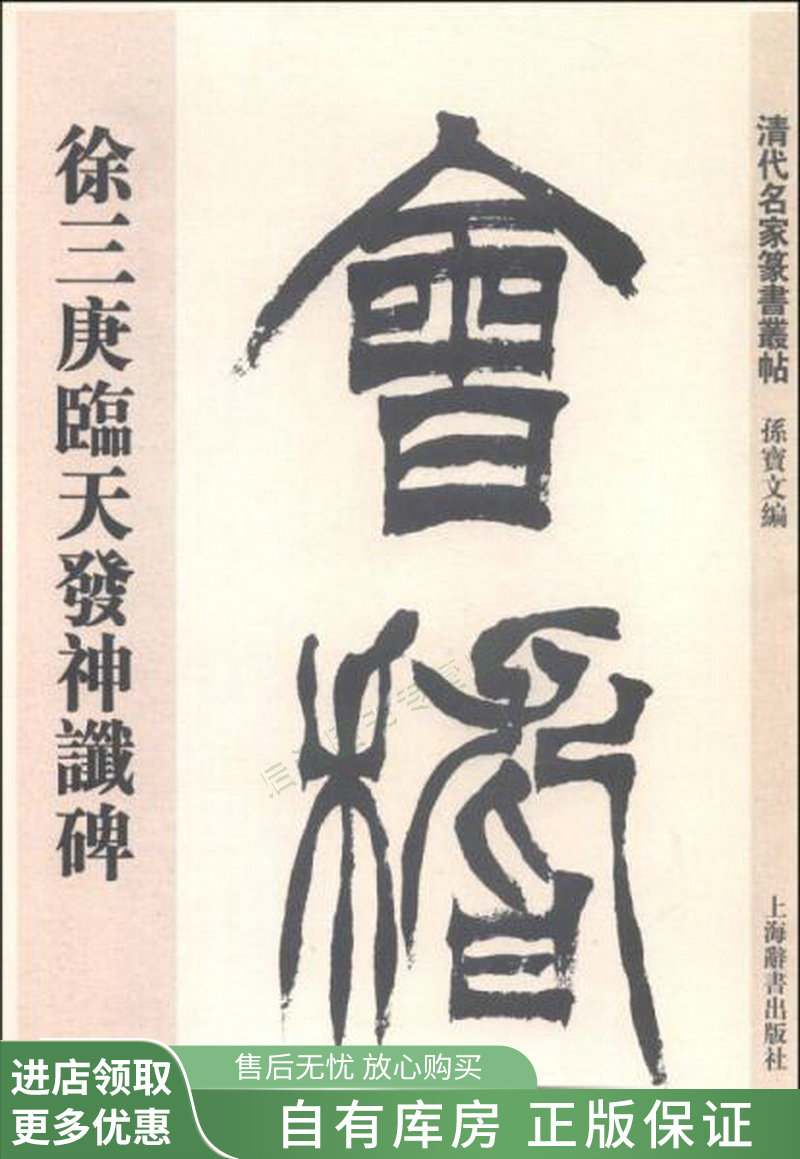 清代名家篆書叢帖
孫寶文編
上海辭書出版社
會稽
徐三庚臨天發神讖碑
进店领取
更多优惠
售后无忧 放心购买
自有库房 正版保证